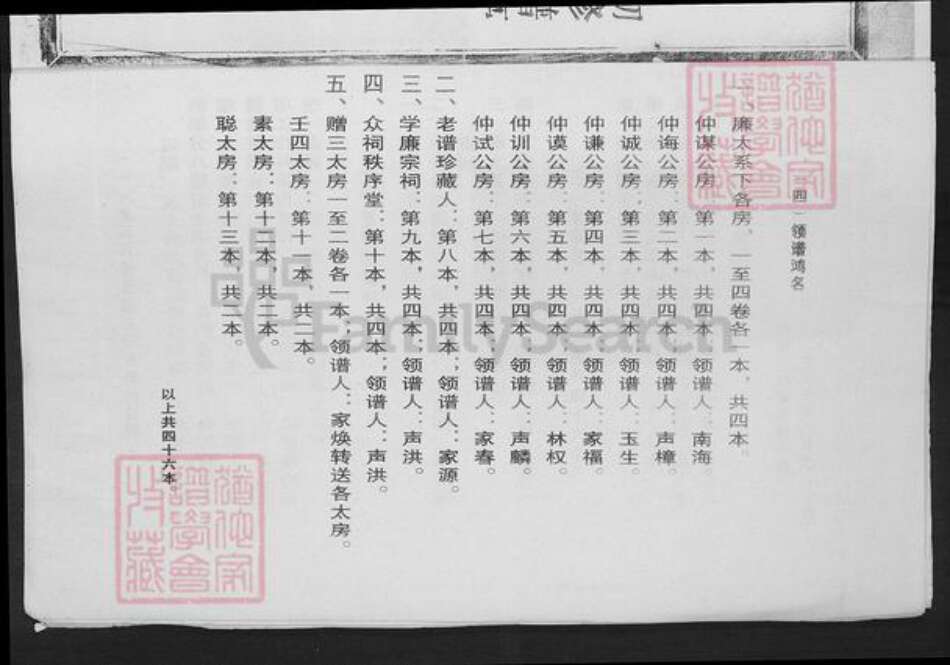 四、领谱鸿名
一、廉太系下各房，一至四卷各一本，共四本。
仲谋公房：第一本，共四本，领谱人：南海。
仲诲公房：第二本，共四本，领谱人：声樟。
仲诚公房：第三本，共四本，领谱人：玉生。
仲谦公房：第四本，共四本，领谱人：家福。
仲谟公房：第五本，共四本，领谱人：林权。
仲训公房：第六本，共四本，领谱人：声麟。
仲试公房：第七本，共四本，领谱人：家春。
二、老谱珍藏人：第八本，共四本；领谱人：家源。
三、学廉宗祠：第九本，共四本；领谱人：声洪。
四、众祠秩序堂：第十本，共四本；领谱人：声洪。
五、赠三太房一至二卷各一本；领谱人：家焕转送各太房。
壬四太房：第十一本，共二本。
素太房：第十二本，共二本。
聪太房：第十三本，共二本。
以上共四十六本。
FamilySearch